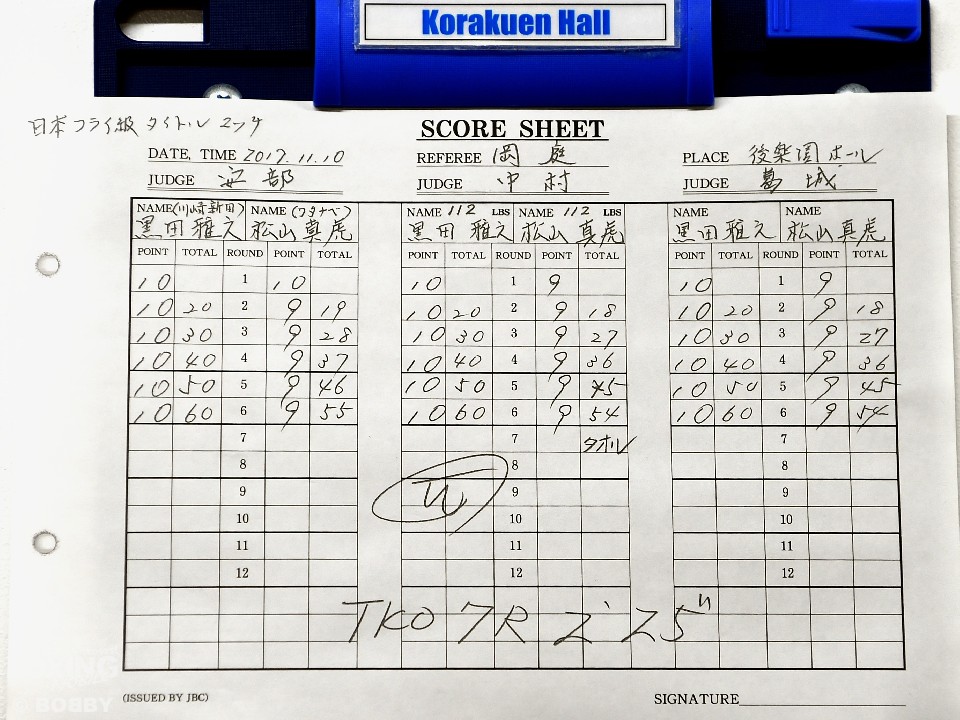 Korakuen Hall
日本フライ級 タイトルマッチ
SCORE SHEET
DATE, TIME 2017.11.10 REFEREE 岡庭 PLACE 後楽園ホール
JUDGE 安部 JUDGE 中村 JUDGE 葛城
NAME (川崎新田) NAME (ワタナベ) NAME 112 LBS NAME 112 LBS NAME NAME
黒田 雅之 松山 真虎 黒田 雅之 松山 真虎 黒田 雅之 松山 真虎
POINT TOTAL ROUND POINT TOTAL POINT TOTAL ROUND POINT TOTAL POINT TOTAL ROUND POINT TOTAL
10 1 10 10 1 9 10 1 9
10 20 2 9 19 10 20 2 9 18 10 20 2 9 18
10 30 3 9 28 10 30 3 9 27 10 30 3 9 27
10 40 4 9 37 10 40 4 9 36 10 40 4 9 36
10 50 5 9 46 10 50 5 9 45 10 50 5 9 45
10 60 6 9 55 10 60 6 9 54 10 60 6 9 54
7 7 タオル 7
8 8 8
9 W 9 9
10 10 10
11 11 11
12 12 12
TKO 7R 2'25"
(ISSUED BY JBC) SIGNATURE
BOBBY